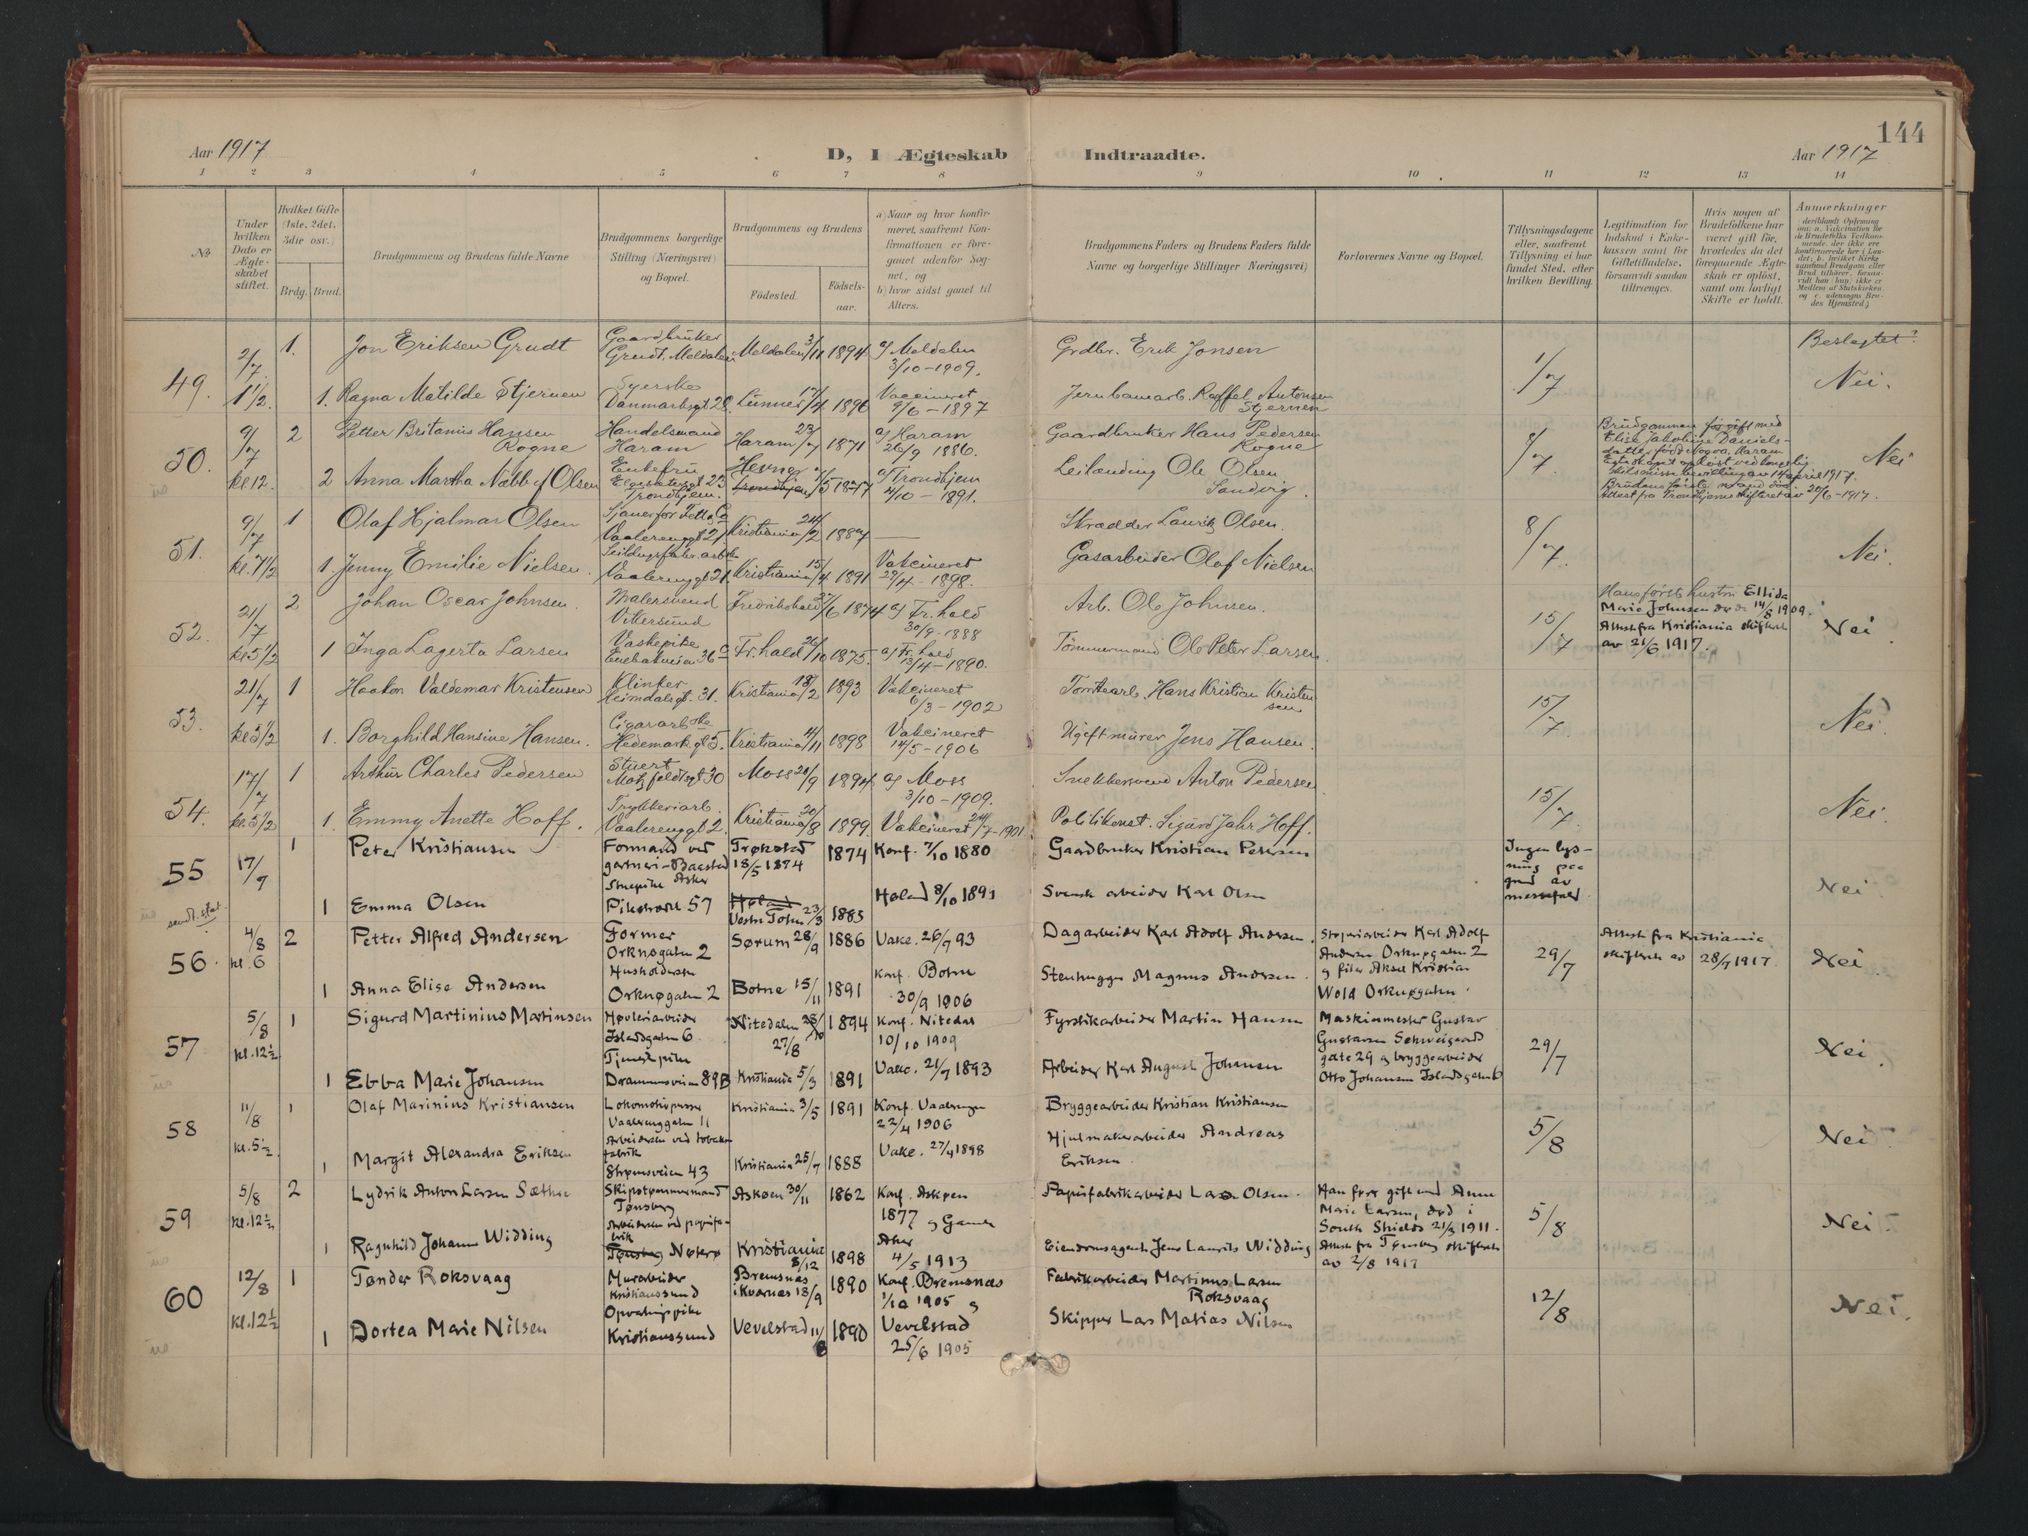 144
Aar 1917
D, I Ægteskab Indtraadte.
Aar 1917
1 2 3 4 5 6 7 8 9 10 11 12 13 14
No
Under hvilken Dato er Ægteskabet stiftet.
Hvilket Gifte (1ste, 2det, 3die osv.)
Brdg. Brud.
Brudgommens og Brudens fulde Navne
Brudgommens borgerlige Stilling (Næringsvei) og Bopæl.
Brudgommens og Brudens
Fødested. Fødselsaar.
a) Naar og hvor konfirmeret, saafremt Konfirmationen er foregaaet udenfor Sognet, og
b) hvor sidst gaaet til Alters.
Brudgommens Faders og Brudens Faders fulde Navne og borgerlige Stillinger (Næringsvei)
Forlovernes Navne og Bopæl.
Tillysningsdagene eller, saafremt Tillysning ei har fundet Sted, efter hvilken Bevilling.
Legitimation for Indskud i Enkekassen samt for Giftetilladelse, forsaavidt saadan tiltrænges.
Hvis nogen af Brudefolkene har været gift før, hvorledes da det foregaaende Ægteskab er opløst, samt om lovligt Skifte er holdt.
Anmærkninger
Beslegtet?
49. 2/7 1. Jon Eriksen Grudt Gaardbruker Grudt. Meldalen Meldalen 3/11 1894 af Meldalen 3/10-1909. Grdbr. Erik Jonsen 1/7 Nei.
1 1/2. 1. Ragna Matilde Stjernen Syerske Danmarksgt 28. Lunner 17/4 1896 Vaccineret 9/6-1897 Jernbanearb. Roffel Antonsen Stjernen
50. 9/7 2 Petter Britanius Hansen Rogne Handelsmand Haram Haram 23/7 1871 af Haram 26/9 1886. Gaardbruker Hans Pedersen Rogne 8/7 Nei
Brudgommen før gift med
Elise Jakobine Danielsdatter
kl 12. 2 Anna Martha Nebb f Olsen Enkefru Trondhjem. Hevne Trondhjem 1877 af Trondhjem 4/10-1891. Leilænding Ole Olsen Sandvig.
51. 9/7 1 Olaf Hjalmar Olsen Vaalerenggt 21 Kristiania 24/2 1887 — Skrædder Lauritz Olsen. 8/7 Nei.
kl. 7 1/2 1. Jenny Emilie Nielsen. Vaalerenggt 21. Kristiania 15/4 1891 Vakcineret 29/4-1898. Gasarbeider Olaf Nielsen
52. 21/7 2 Johan Oscar Johnsen. Malersvend Vikersund Fredrikshald 27/6 1874 af Fr.hald 30/9-1888 Arb. Ole Johnsen. 15/7 Nei
Hans første hustru Ellida
Marie Johnsen død 14/8 1909.
Attest fra Kristiania skifteret
av 21/6 1917.
kl 5 1/2 1 Inga Lagerta Larsen Vaskepike Enebakveien 36 c Fr.hald 26/10 1875. af Fr. hald 13/4-1890. Tømmermand Ole Peter Larsen.
53. 21/7 1 Haakon Valdemar Kristensen Klinker Heimdalsgt. 31. Kristiania 18/2 1893 Vakcineret 6/3-1902 Tomtearb. Hans Kristian Kristensen 15/7 Nei.
kl 5 1/2 1. Borghild Hansine Hansen. Cigararbske Hedemarksgt 5. Kristiania 4/11 1898 Vakcineret 14/5-1906 Ugift murer Jens Hansen.
54. 17/7 1 Arthur Charles Pedersen Stuert Motzfeldtsgt 30 Moss 20/9 1894 af Moss 3/10-1909. Snekkersvend Anton Pedersen 15/7 Nei.
kl. 5 1/2 1. Emmy Anette Hoff. Trykkeriarb. Vaalerenggt 2. Kristiania 20/8 1899 Vakcineret 24/7-1901 Politikonst. Sigurd Jahr Hoff.
55 17/7 1 Peter Kristiansen Formand ved gartneri-Baastad Trøkstad 18/5 1874 1874 Konf. 7/10 1880 Gaardbruker Kristian Petersen Ingen lysning paa grund av messefald Nei
1 Emma Olsen Stuepike Asker Pilestrædet 57 Høland 23/3 1885 Høland 8/10 1893 Svensk arbeider Karl Olsen
56. 4/8 kl. 6 2 Petter Alfred Andersen Former Orknøgaten 2 Sørum 28/9 1886 Vakc. 26/7 93 Dagarbeider Karl Adolf Andersen. Støperiarbeider Karl Adolf Andersen Orknøgaten 2 og filer Aksel Kristian Wold Orknøgaten. 29/7 Attest fra Kristiania skifteret av 28/7 1917. Nei
1 Anna Elise Andersen Husholderske Orknøgaten 2 Botne 15/11 1891 Konf. Botne 30/9 1906 Stenhugger Magnus Andersen.
57 5/8 kl. 12 1/2 1 Sigurd Martinius Martinsen Høvleriarbeider Islandsgaten 6 Nitedalen 28/10 27/8 1894 Konf. Nitedal 10/10 1909 Fyrstikarbeider Martin Hansen Maskinmester Gustav Gustavsen Schweigaardsgate 29 og bryggearbeider Otto Johansen Islandsgaten 6 29/7 Nei
1 Ebba Marie Johansen Tjenestepike Drammensveien 89B Kristiania 5/3 1891 Vakc. 21/7 1893 Arbeider Karl August Johansen
58 11/8 kl. 5 1/2 1 Olaf Marinius Kristiansen Lokomotivpusser Vaalerenggaten 11 Kristiania 3/5 1891 Konf. Vaalerengen 22/4 1906 Bryggearbeider Kristian Kristiansen 5/8 Nei
1 Margit Alexandra Eriksen Arbeiderske ved tobaksfabrik Strømsveien 43 Kristiania 25/7 1888 Vakc. 27/4 1898 Hjulmakerarbeider Andreas Eriksen.
59 5/8 kl. 12 1/2 2 Lydrik Anton Larsen Sæthre Skipstømmermand Tønsberg Askøen 30/11 1862 Konf. Askøen 1877 Papirfabrikarbeider Lars Olsen. Han før gift med Anne Marie Larsen, død i South Shields 21/3 1911. Attest fra Tønsberg skifteret av 2/8 1917 5/8 Nei
1 Ragnhild Johanne Widding Arbeiderske ved papirfabrik Tønsberg Nøterø Kristiania 8/12 1898 og Gamle Aker 4/5 1913 Eiendomsagent Jens Laurits Widding
60 12/8 kl. 12 1/2 1 Tønder Roksvaag Murarbeider Kristianssund Bremsnes i Kvernes 18/9 1890 Konf. Bremsnes 1/10 1905 og Fabrikarbeider Martinus Larsen Roksvaag 12/8 Nei.
1 Dortea Marie Nilsen Opvartningspike Kristianssund Vevelstad 11/8 1890 Vevelstad 25/6 1905 Skipper Lars Matias Nilsen